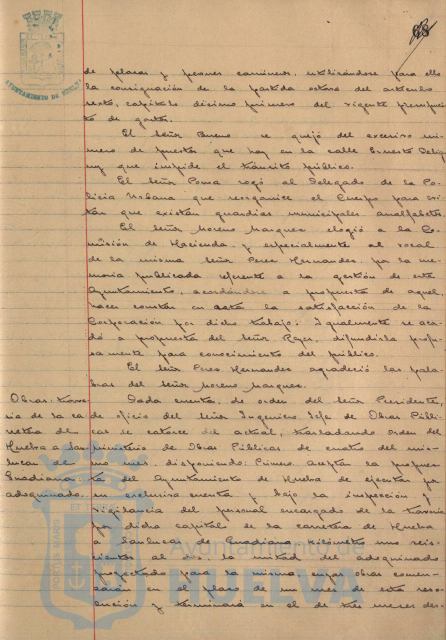 68
AYUNTAMIENTO DE HUELVA
de plazas y peones camineros, utilizándose para ello
la consignación de la partida octava del artículo
sexto, capítulo décimo primero del vigente presupues
to de gastos.
El Señor Bueno se quejó del excesivo nú-
mero de puestos que hay en la calle Ernesto Delig
ny que impide el tránsito público.
El Señor Poma rogó al Delegado de la Po-
licía Urbana que reorganice el Cuerpo para evi-
tar que existan guardias municipales analfabetos
El Señor Moreno Marquez elogió a la Co-
misión de Hacienda, y especialmente al vocal
de la misma Señor Perez Hernandez, por la me-
moria publicada referente a la gestión de este
Ayuntamiento, acordándose a propuesta de aquel
hacer constar en acta la satisfacción de la
Corporación por dicho trabajo. Igualmente se acor
dó a propuesta del Señor Rejes, difundirla profu-
samente para conocimiento del público.
El Señor Perez Hernandez agradeció las pala-
bras del Señor Moreno Marquez.
Obras: trave
sia de la ca
rretera de
Huelva a San
lucar de
Guadiana
adoquinado.
Dada cuenta, de orden del Señor Presidente,
de oficio del Señor Ingeniero Jefe de Obras Públi-
cas de catorce del actual, trasladando orden del
Ministerio de Obras Públicas de cuatro del mis-
mo mes, disponiendo: Primero. Aceptar la propues
ta del Ayuntamiento de Huelva de ejecutar por
su exclusiva cuenta y bajo la inspección y
vigilancia del personal encargado de la travesía
por dicha capital de la carretera de Huelva
a Sanlucar de Guadiana kilómetro uno seis-
cientos al dos la mitad del adoquinado
proyectado para la misma, cuyas obras comen-
zarán en el plazo de un mes de esta reso-
lución y terminará en el de tres meses des-
Ayuntamiento de
HUELVA